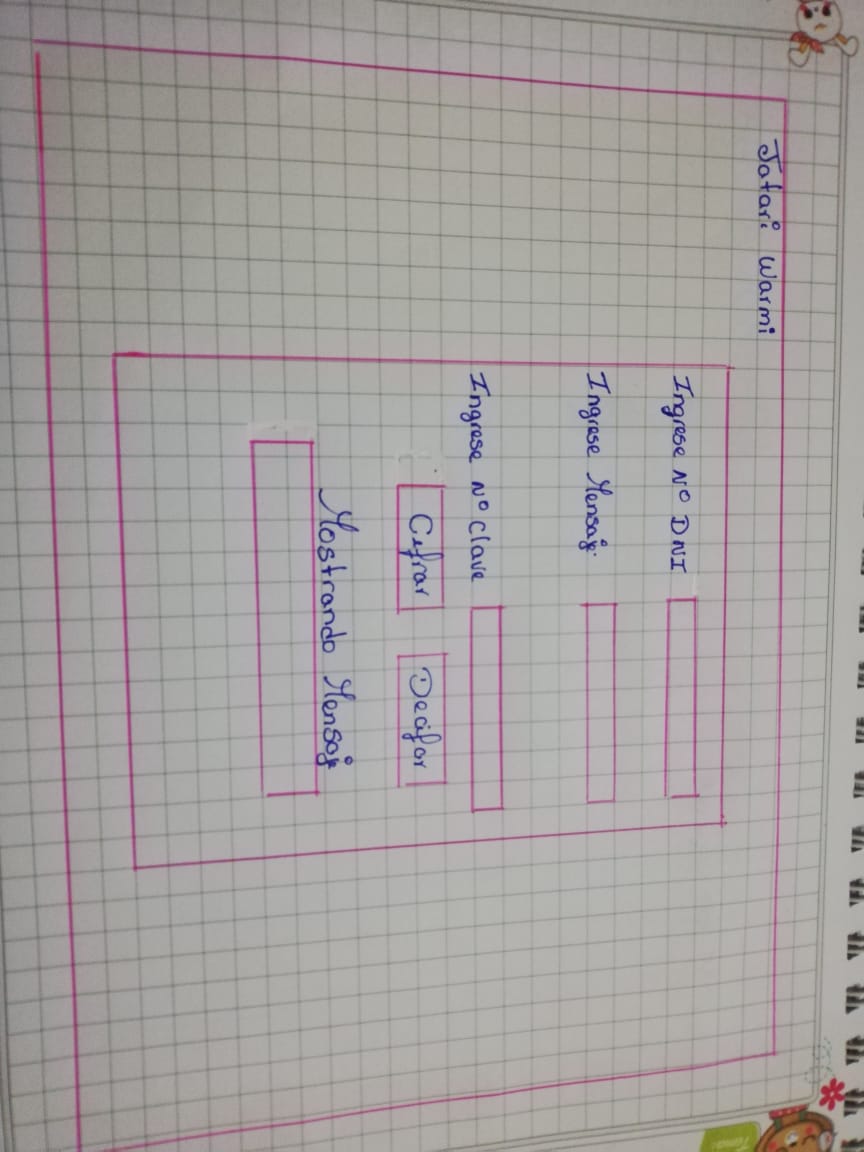 Jatari Warmi
Ingrese Nº DNI
Ingrese Mensaj
Ingrese Nº Clave
Cifrar Decifor
Mostrando Mensaj